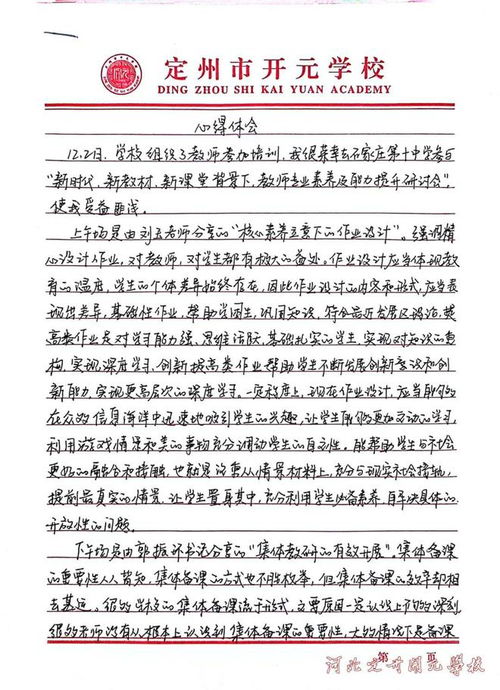 定州市开元学校
DING ZHOU SHI KAI YUAN ACADEMY
心得体会
12.2日，学校组织了教师参加培训，我很荣幸去石家庄第十中学参与
“新时代、新教材、新课堂背景下，教师专业素养及能力提升研讨会”，
使我受益匪浅。
上午场是由刘玉老师分享的“核心素养立意下的作业设计”。强调精
心设计作业，对教师，对学生都有极大的益处。作业设计应当体现教
育的温度，学生的个体差异始终存在，因此作业设计的内容和形式，应当表
现出差异，基础性作业，帮助学困生，巩固知识，符合最近发展区理论，提
高类作业是对学习能力强、思维活跃、基础扎实的学生，实现对知识的重
构，实现深度学习，创新提高类作业帮助学生不断发展创新意识和创
新能力，实现更高层次的深度学习。一定程度上，现在作业设计，应当能够
在众多信息海洋中迅速地吸引学生的兴趣，让学生能够更加主动的学习，
利用游戏情景和美的事物充分调动学生的自主性。能帮助学生与社会
更好的融合和接触，也就是说要从情景材料上，充分与现实社会接轨，
提前最真实的情景，让学生置身其中，充分利用学生必备素养，自主解决具体的
开放性的问题。
下午场是由郭振环书记分享的“集体教研的有效开展”。集体备课
的重要性人人皆知，集体备课的方式也不胜枚举，但集体备课的效率却相
去甚远。很多学校的集体备课流于形式，主要原因一是认识上的不够深刻，
很多老师没有从根本上认识到集体备课的重要性，大多情况下是备课
第 页
河北定州开元学校